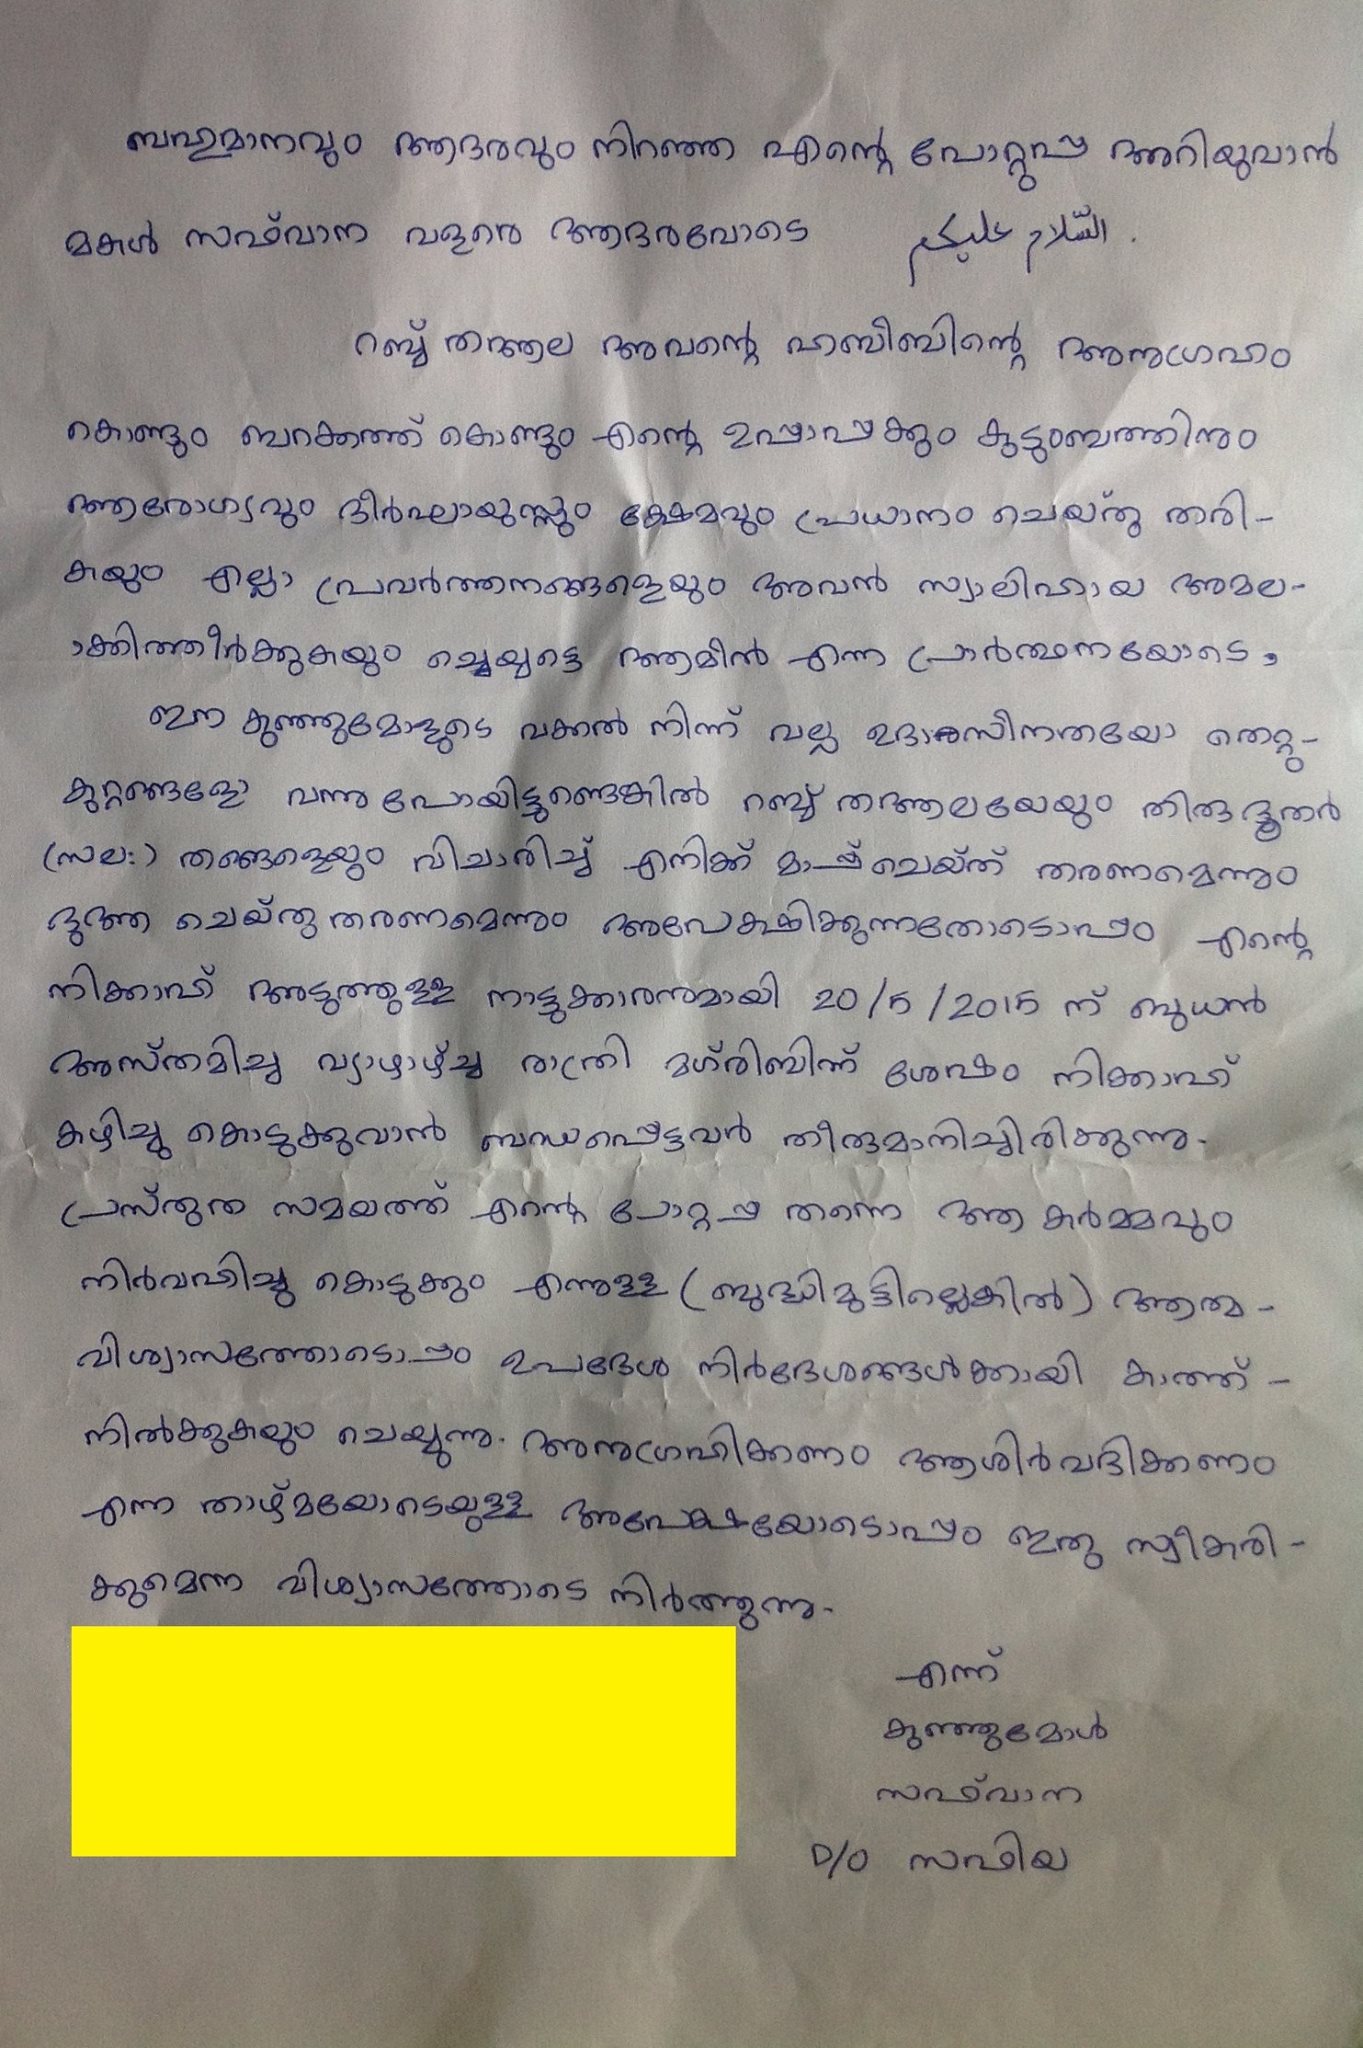 ബഹുമാനവും ആദരവും നിറഞ്ഞ എന്റെ പോറ്റുപ്പ അറിയുവാൻ
മകൾ സഫ്‌വാന വളരെ ആദരവോടെ السّلام عليكم .
റബ്ബ് തആല അവന്റെ ഹബീബിന്റെ അനുഗ്രഹം
കൊണ്ടും ബറക്കത്ത് കൊണ്ടും എന്റെ ഉപ്പാപ്പക്കും കുട്ടുംബത്തിനും
ആരോഗ്യവും ദീർഘായുസ്സും ക്ഷേമവും പ്രധാനം ചെയ്തു തരി-
കയും എല്ലാ പ്രവർത്തനങ്ങളെയും അവൻ സ്വാലിഹായ അമല-
ാക്കിത്തീർക്കുകയും ചെയ്യട്ടെ ആമീൻ എന്ന പ്രാർത്ഥനയോടെ,
ഈ കുഞ്ഞുമോളുടെ വക്കൽ നിന്ന് വല്ല ഉദാസീനതയോ തെറ്റു-
കുറ്റങ്ങളോ വന്നു പോയിട്ടുണ്ടെങ്കിൽ റബ്ബ് തആലയേയും തിരു ദൂതർ
(സല:) തങ്ങളെയും വിചാരിച്ച് എനിക്ക് മാപ്പ് ചെയ്ത് തരണമെന്നും
ദുആ ചെയ്തു തരണമെന്നും അപേക്ഷിക്കുന്നതോടൊപ്പം എന്റെ
നിക്കാഹ് അടുത്തുള്ള നാട്ടുക്കാരനുമായി 20/5/2015 ന് ബുധൻ
അസ്തമിച്ച വ്യാഴാഴ്ച്ച രാത്രി മഗ്‌രിബിന്ന് ശേഷം നിക്കാഹ്
കഴിച്ചു കൊടുക്കുവാൻ ബന്ധപ്പെട്ടവർ തീരുമാനിച്ചിരിക്കുന്നു.
പ്രസ്തുത സമയത്ത് എന്റെ പോറ്റുപ്പ തന്നെ ആ കർമ്മവും
നിർവഹിച്ചു കൊടുക്കും എന്നുള്ള (ബുദ്ധിമുട്ടില്ലെങ്കിൽ) ആത്മ-
വിശ്വാസത്തോടൊപ്പം ഉപദേശ നിർദേശങ്ങൾക്കായി കാത്ത്-
നിൽക്കുകയും ചെയ്യുന്നു. അനുഗ്രഹിക്കണം ആശിർവദിക്കണം
എന്ന താഴ്മയോടെയുള്ള അപേക്ഷയോടൊപ്പം ഇതു സ്വീകരി-
ക്കുമെന്ന വിശ്വാസത്തോടെ നിർത്തുന്നു.
എന്ന്
കുഞ്ഞുമോൾ
സഫ്‌വാന
D/O സഫിയ